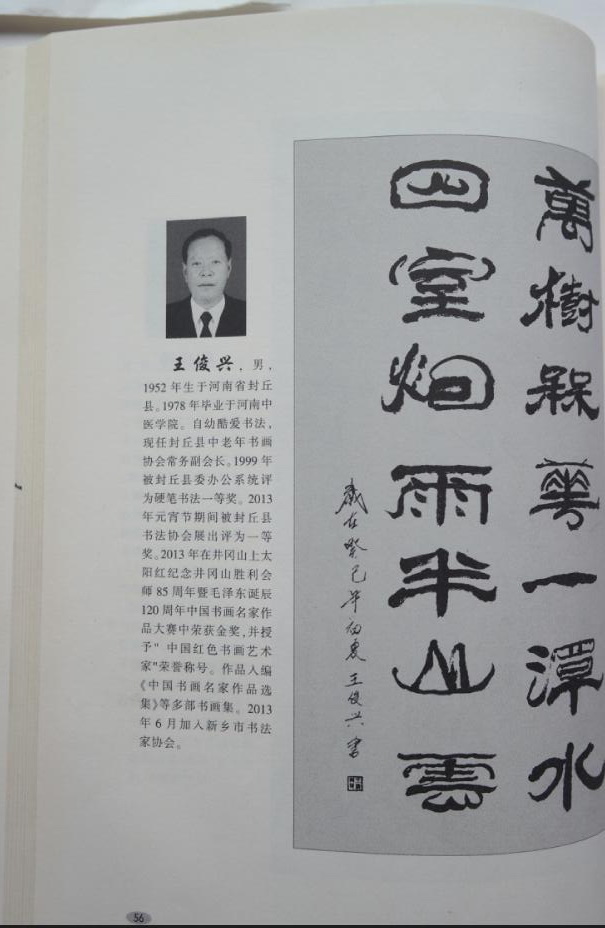 王俊兴，男，
1952年生于河南省封丘
县。1978年毕业于河南中
医学院。自幼酷爱书法，
现任封丘县中老年书画
协会常务副会长。1999年
被封丘县委办公系统评
为硬笔书法一等奖。2013
年元宵节期间被封丘县
书法协会展出评为一等
奖。2013年在井冈山上太
阳红纪念井冈山胜利会
师85周年暨毛泽东诞辰
120周年中国书画名家作
品大赛中荣获金奖，并授
予" 中国红色书画艺术
家"荣誉称号。作品入编
《中国书画名家作品选
集》等多部书画集。2013
年6月加入新乡市书法
家协会。
萬樹槑華一潭水
四室烟雨半山雲
歲在癸巳年 王俊兴書
56